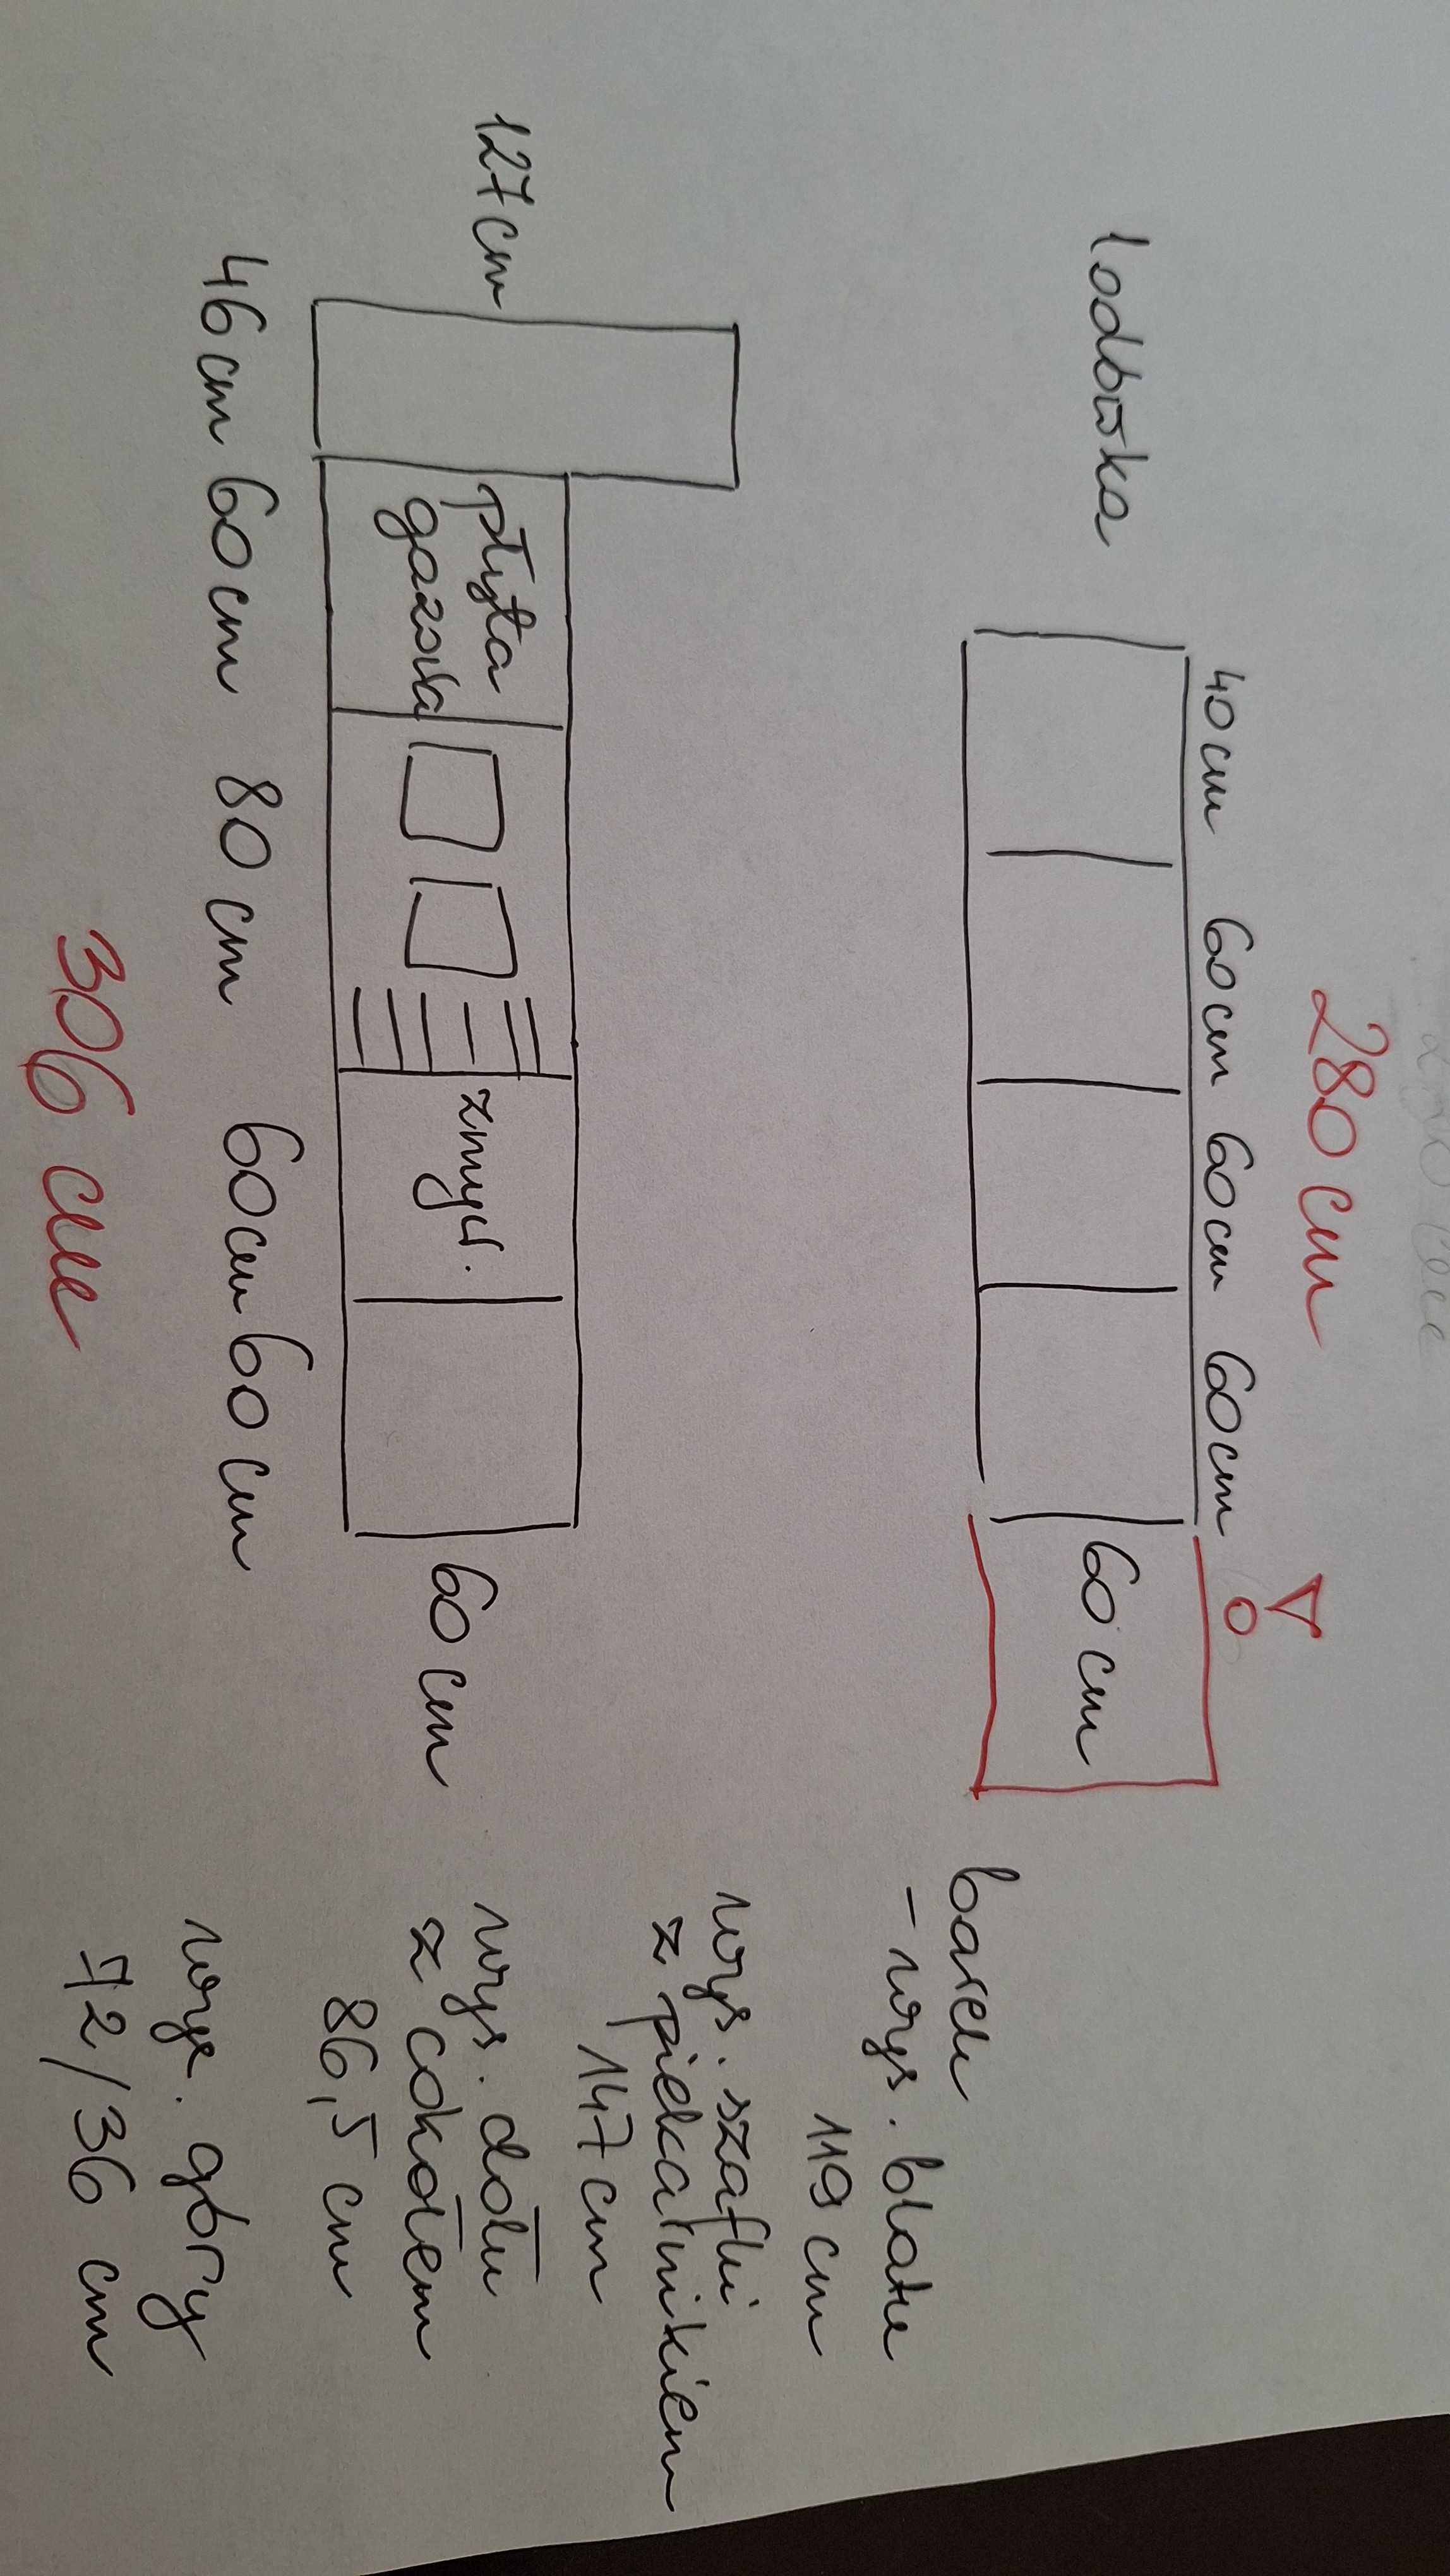 280 cm
40cm 60cm 60cm 60cm
lodówka
60 cm
127cm
płyta
gazowa
zmyw.
60 cm
46cm 60cm 80 cm 60cm 60 cm
306 cm
barek
- wys. blatu
119 cm
wys. szafki
z piekarnikiem
147 cm
wys. dołu
z cokołem
86,5 cm
wys. góry
72/36 cm